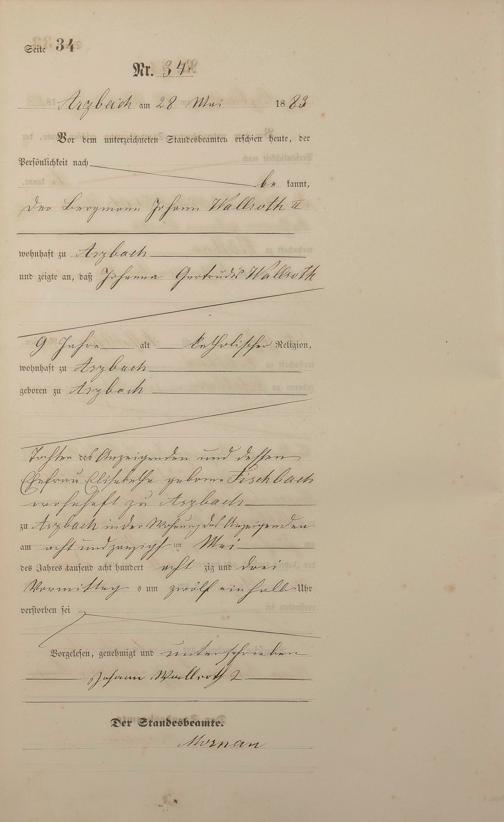 Seite 34
Nr. 34.
Arzbach am 28 Mai 1883
Vor dem unterzeichneten Standesbeamten erschien heute, der
Persönlichkeit nach
be kannt,
der Bergmann Johann Wallroth II
wohnhaft zu Arzbach
und zeigte an, daß Johanna Gertrudis Wallroth
9 Jahre alt katholischer Religion,
wohnhaft zu Arzbach
geboren zu Arzbach
Tochter des Anzeigenden und dessen
Ehefrau Elisabetha geborne Fischbach
wohnhaft zu Arzbach
zu Arzbach in der Wohnung des Anzeigenden
am acht und zwanzigsten Mai
des Jahres tausend acht hundert acht zig und drei
Vormittag s um zwölf ein halb Uhr
verstorben sei
Vorgelesen, genehmigt und unterschrieben
Johann Wallroth 2
Der Standesbeamte.